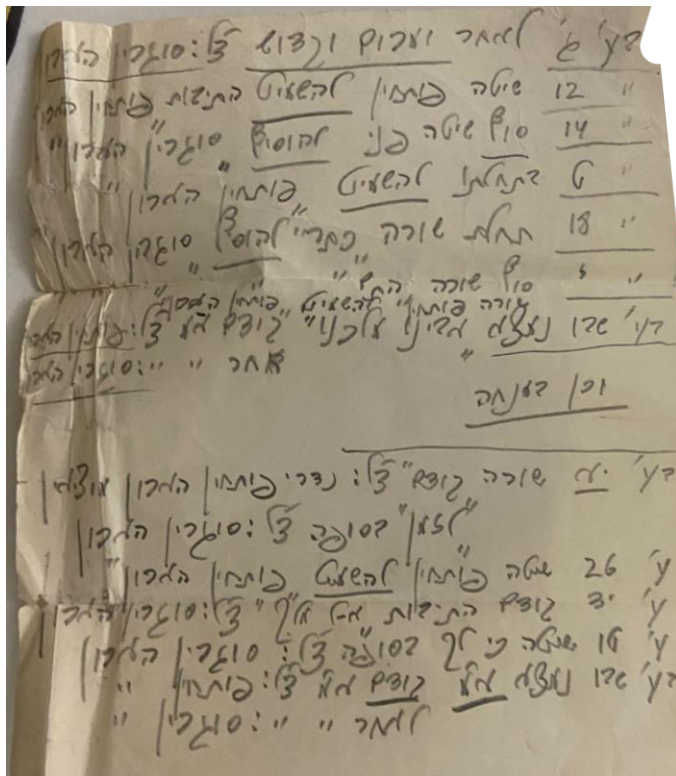 בע' ג' לאחר וערום וקדוש צ"ל: סוגרין הארון
" 12 שיטה פותחין להשמיט התיבות פותחין הארון
" 14 סוף שיטה פני להוסיף "סוגרין הארון"
" ט בתחלתו להשמיט "פותחין הארון"
" 18 תחלת שורה כתר" להוסיף סוגרין הארון
" סוף שורה
שורה פותחין להשמיט "פותחין הארון"
בע' שבו נמצא אבינו מלכנו" קודם צ"ל: פותחין הארון
אחר " " : סוגרין הארון
וכן במנחה
בע' שורה קודם" צ"ל: נדרי פותחין הארון
"לזמן" בסופה צ"ל: סוגרין הארון
ע' 26 שיטה "פותחין להשמיט פותחין הארון"
ע' יד קודם התיבות אל מלך" צ"ל: סוגרין הארון
ע' טו שיטה כי לך בסופה צ"ל: סוגרין הארון
בע' שבו נמצא קודם צ"ל: פותחין "
לאחר " " : סוגרין "